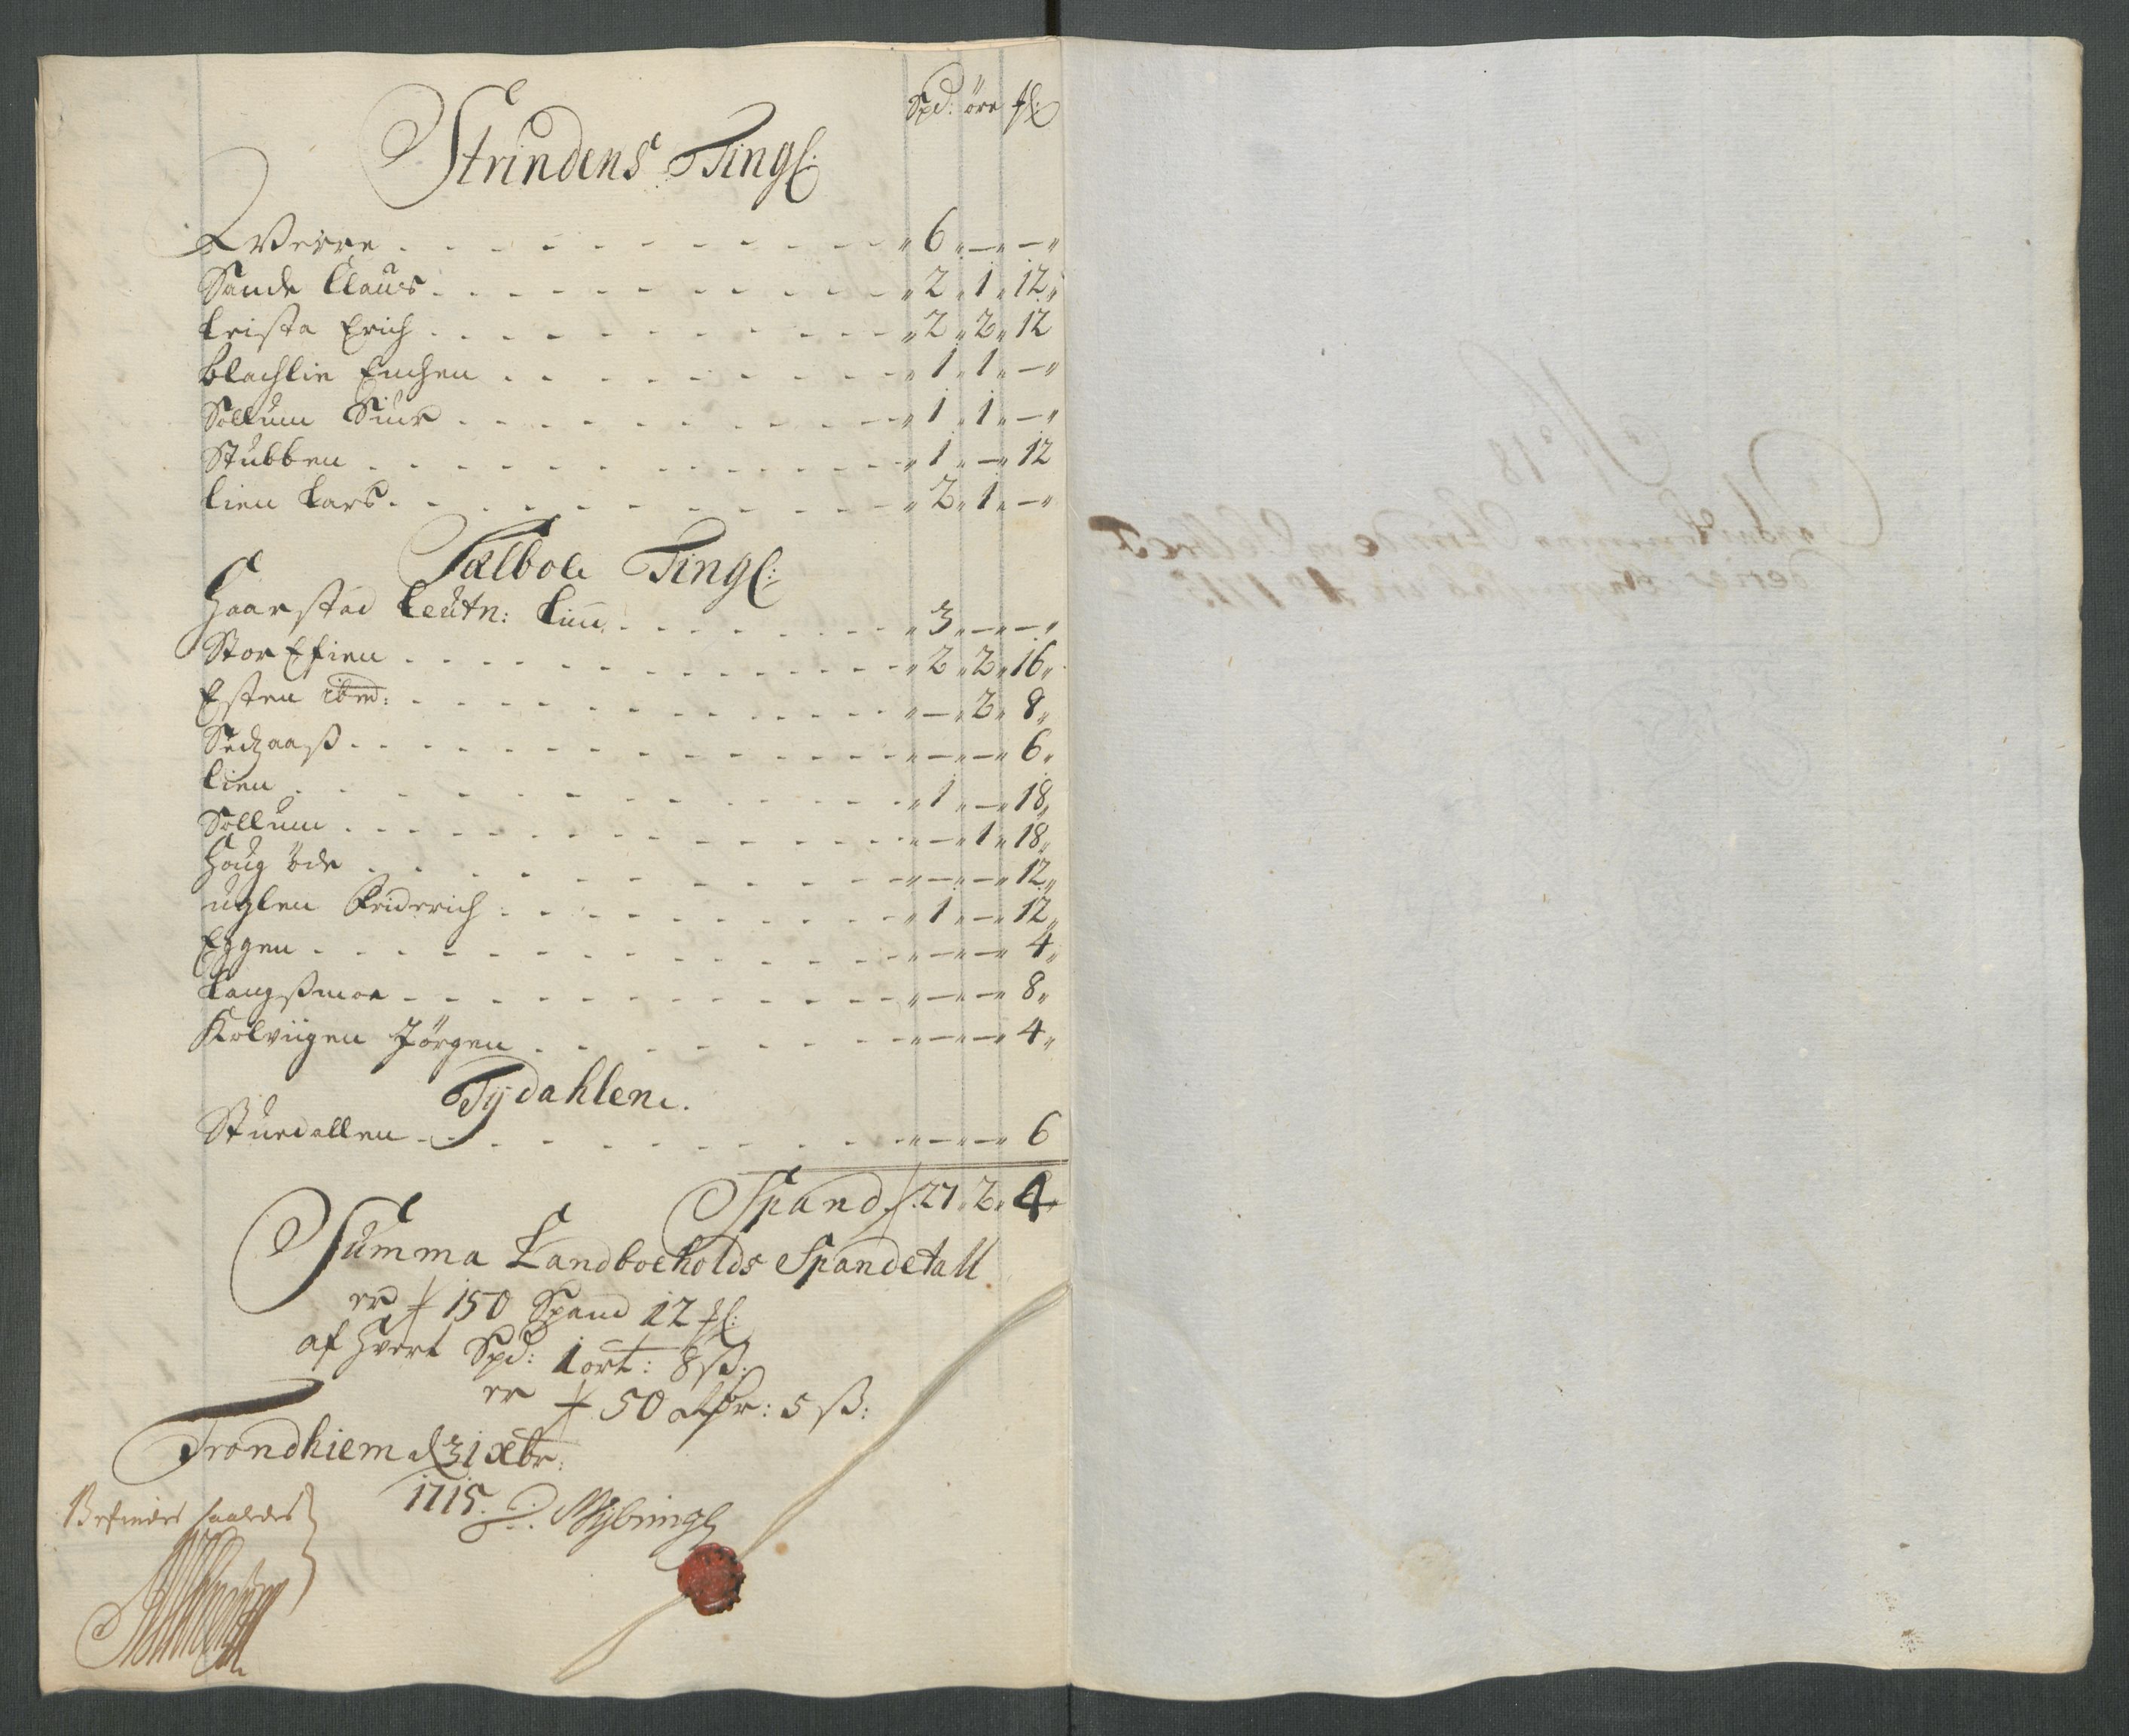 Spd: öre ℳl:
Strindens Tingl:
Qverre " 6 " — " — "
Sande Claus " 2 " 1 " 12 "
Leista Erich " 2 " 2 " 12
Blachlie Enchen " 1 " 1 " — "
Sollum Siur " 1 " 1 " — "
Stubben " 1 " — " 12
Lien Lars " 2 " 1 " — "
Sælboe Tingl:
Haarstad Leutn: Linn " 3 " — " — "
Stor Efien " 2 " 2 " 16 "
Esten ibm: " — " 2 " 8 "
Sedzaaß " — " — " 6 "
Lien " 1 " — " 18 "
Sollum " — " 1 " 18 "
Houg öde " — " — " 12 "
Uglen Friderich " 1 " — " 12 "
Eggen " — " — " 4 "
Langßmoe " — " — " 8 "
Kolviigen Jörgen " — " — " 4 "
Tydahlen.
Stuedallen " — " — " 6
Spand 27 " 2 " 4
Summa Landboeholds Spandetall
er 150 Spand 12 ℳl:
af hvert Spd: 1 ort: 8 ß:
er 50 Rdr: 5 ß:
Trondhiem d 31 xbr:
1715.
Befindes saaledes
No 18